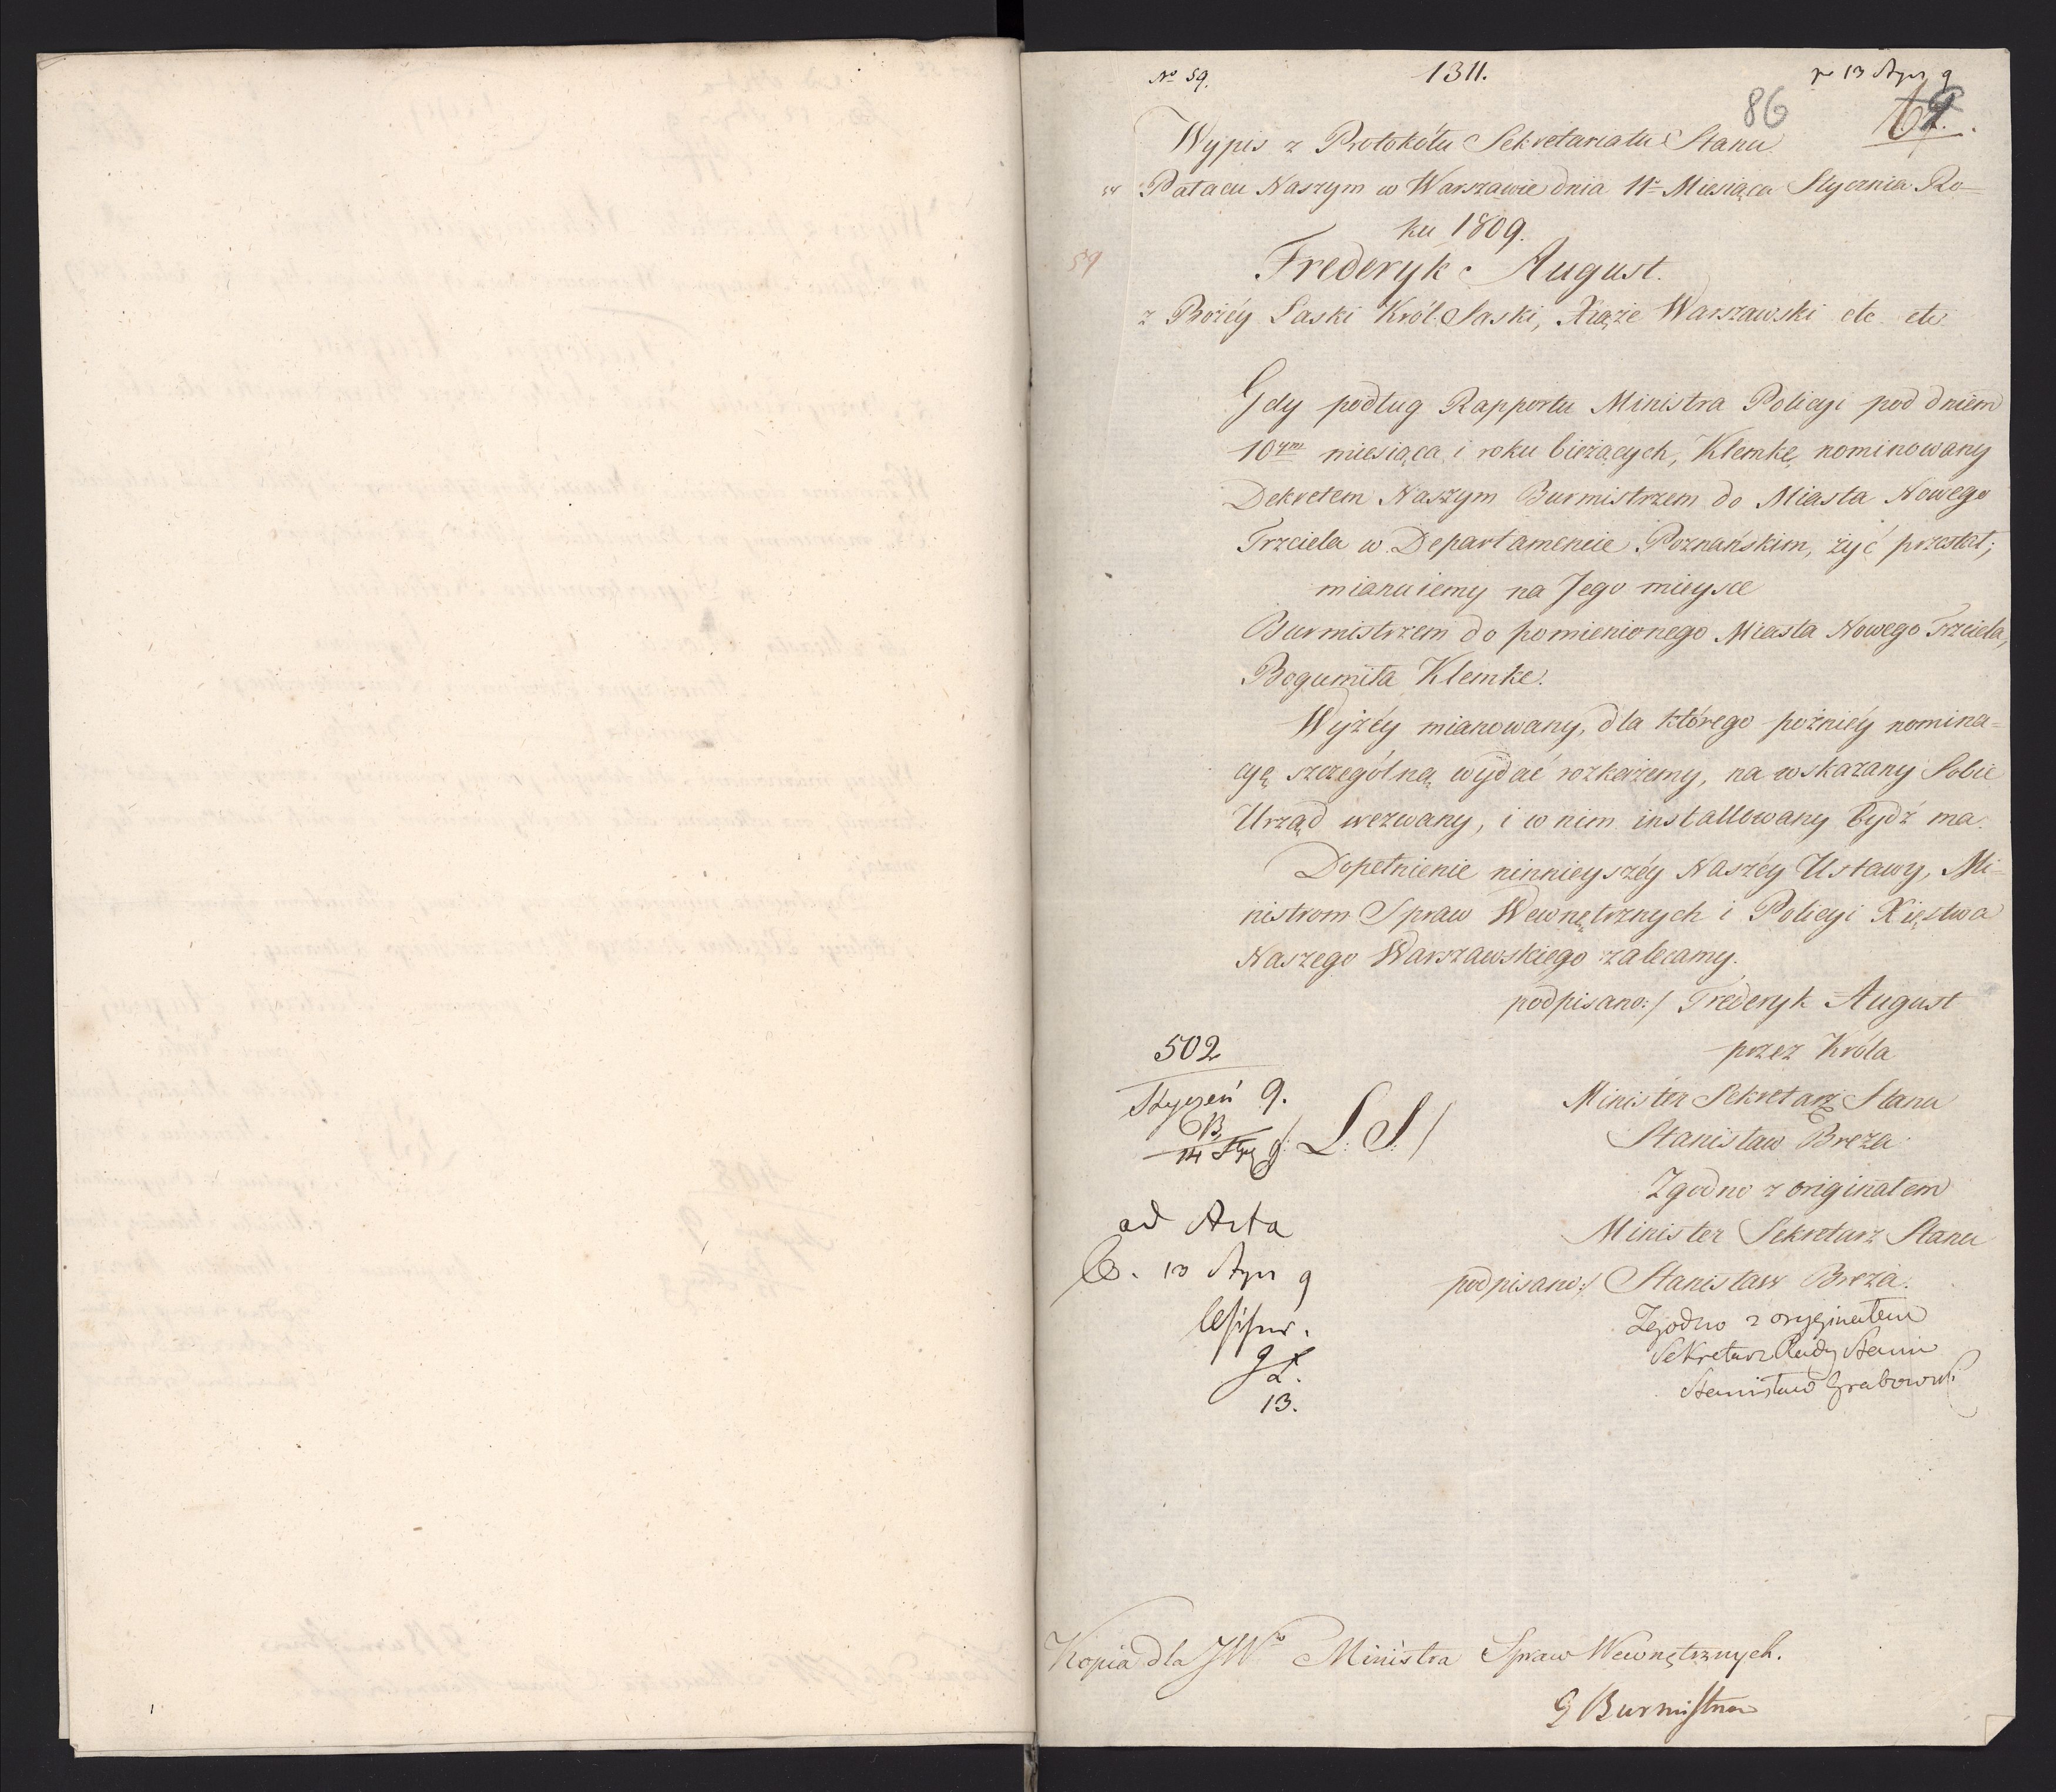 № 59.
1311.
13 Stycz 9
86
Wypis z Protokółu Sekretariatu Stanu
w Pałacu Naszym w Warszawie dnia 11º Miesiąca Stycznia Ro=
ku 1809.
59
Frederyk August.
z Bożéy Łaski Król Saski, Xiąże Warszawski etc. etc.
Gdy podług Rapportu Ministra Policyi pod dniem
10ym miesiąca i roku bieżących, Klemke, nominowany
Dekretem Naszym Burmistrzem do Miasta Nowego
Trzciela w Departamencie Poznańskim, żyć przestał;
mianuiemy na Jego mieysce
Burmistrzem do pomienionego Miasta Nowego Trzciela,
Bogumiła Klemke.
Wyżéy mianowany, dla którego pożniéy nomina=
cyę szczególną wydać rozkażemy, na wskazany Sobie
Urząd wezwany, i w nim installowany bydź ma.
Dopełnienie ninnieyszéy Naszéy Ustawy, Mi=
nistrom Spraw Wewnętrznych i Policyi Xięstwa
Naszego Warszawskiego zalecamy.
podpisano:/ Frederyk August
przez Króla
Minister Sekretarz Stanu
Stanisław Breza
502
Styczeń 9.
14 Sty 9
/: L: S: /
Zgodno z originałem
Minister Sekretarz Stanu
podpisano:/ Stanisław Breza.
ad Acta
13 Stycz 9
13.
Zgodno z oryginałem
Sekretarz Rady Stanu
Stanisław Grabowski
Kopia dla JWo Ministra Spraw Wewnętrznych.
Burmistrza